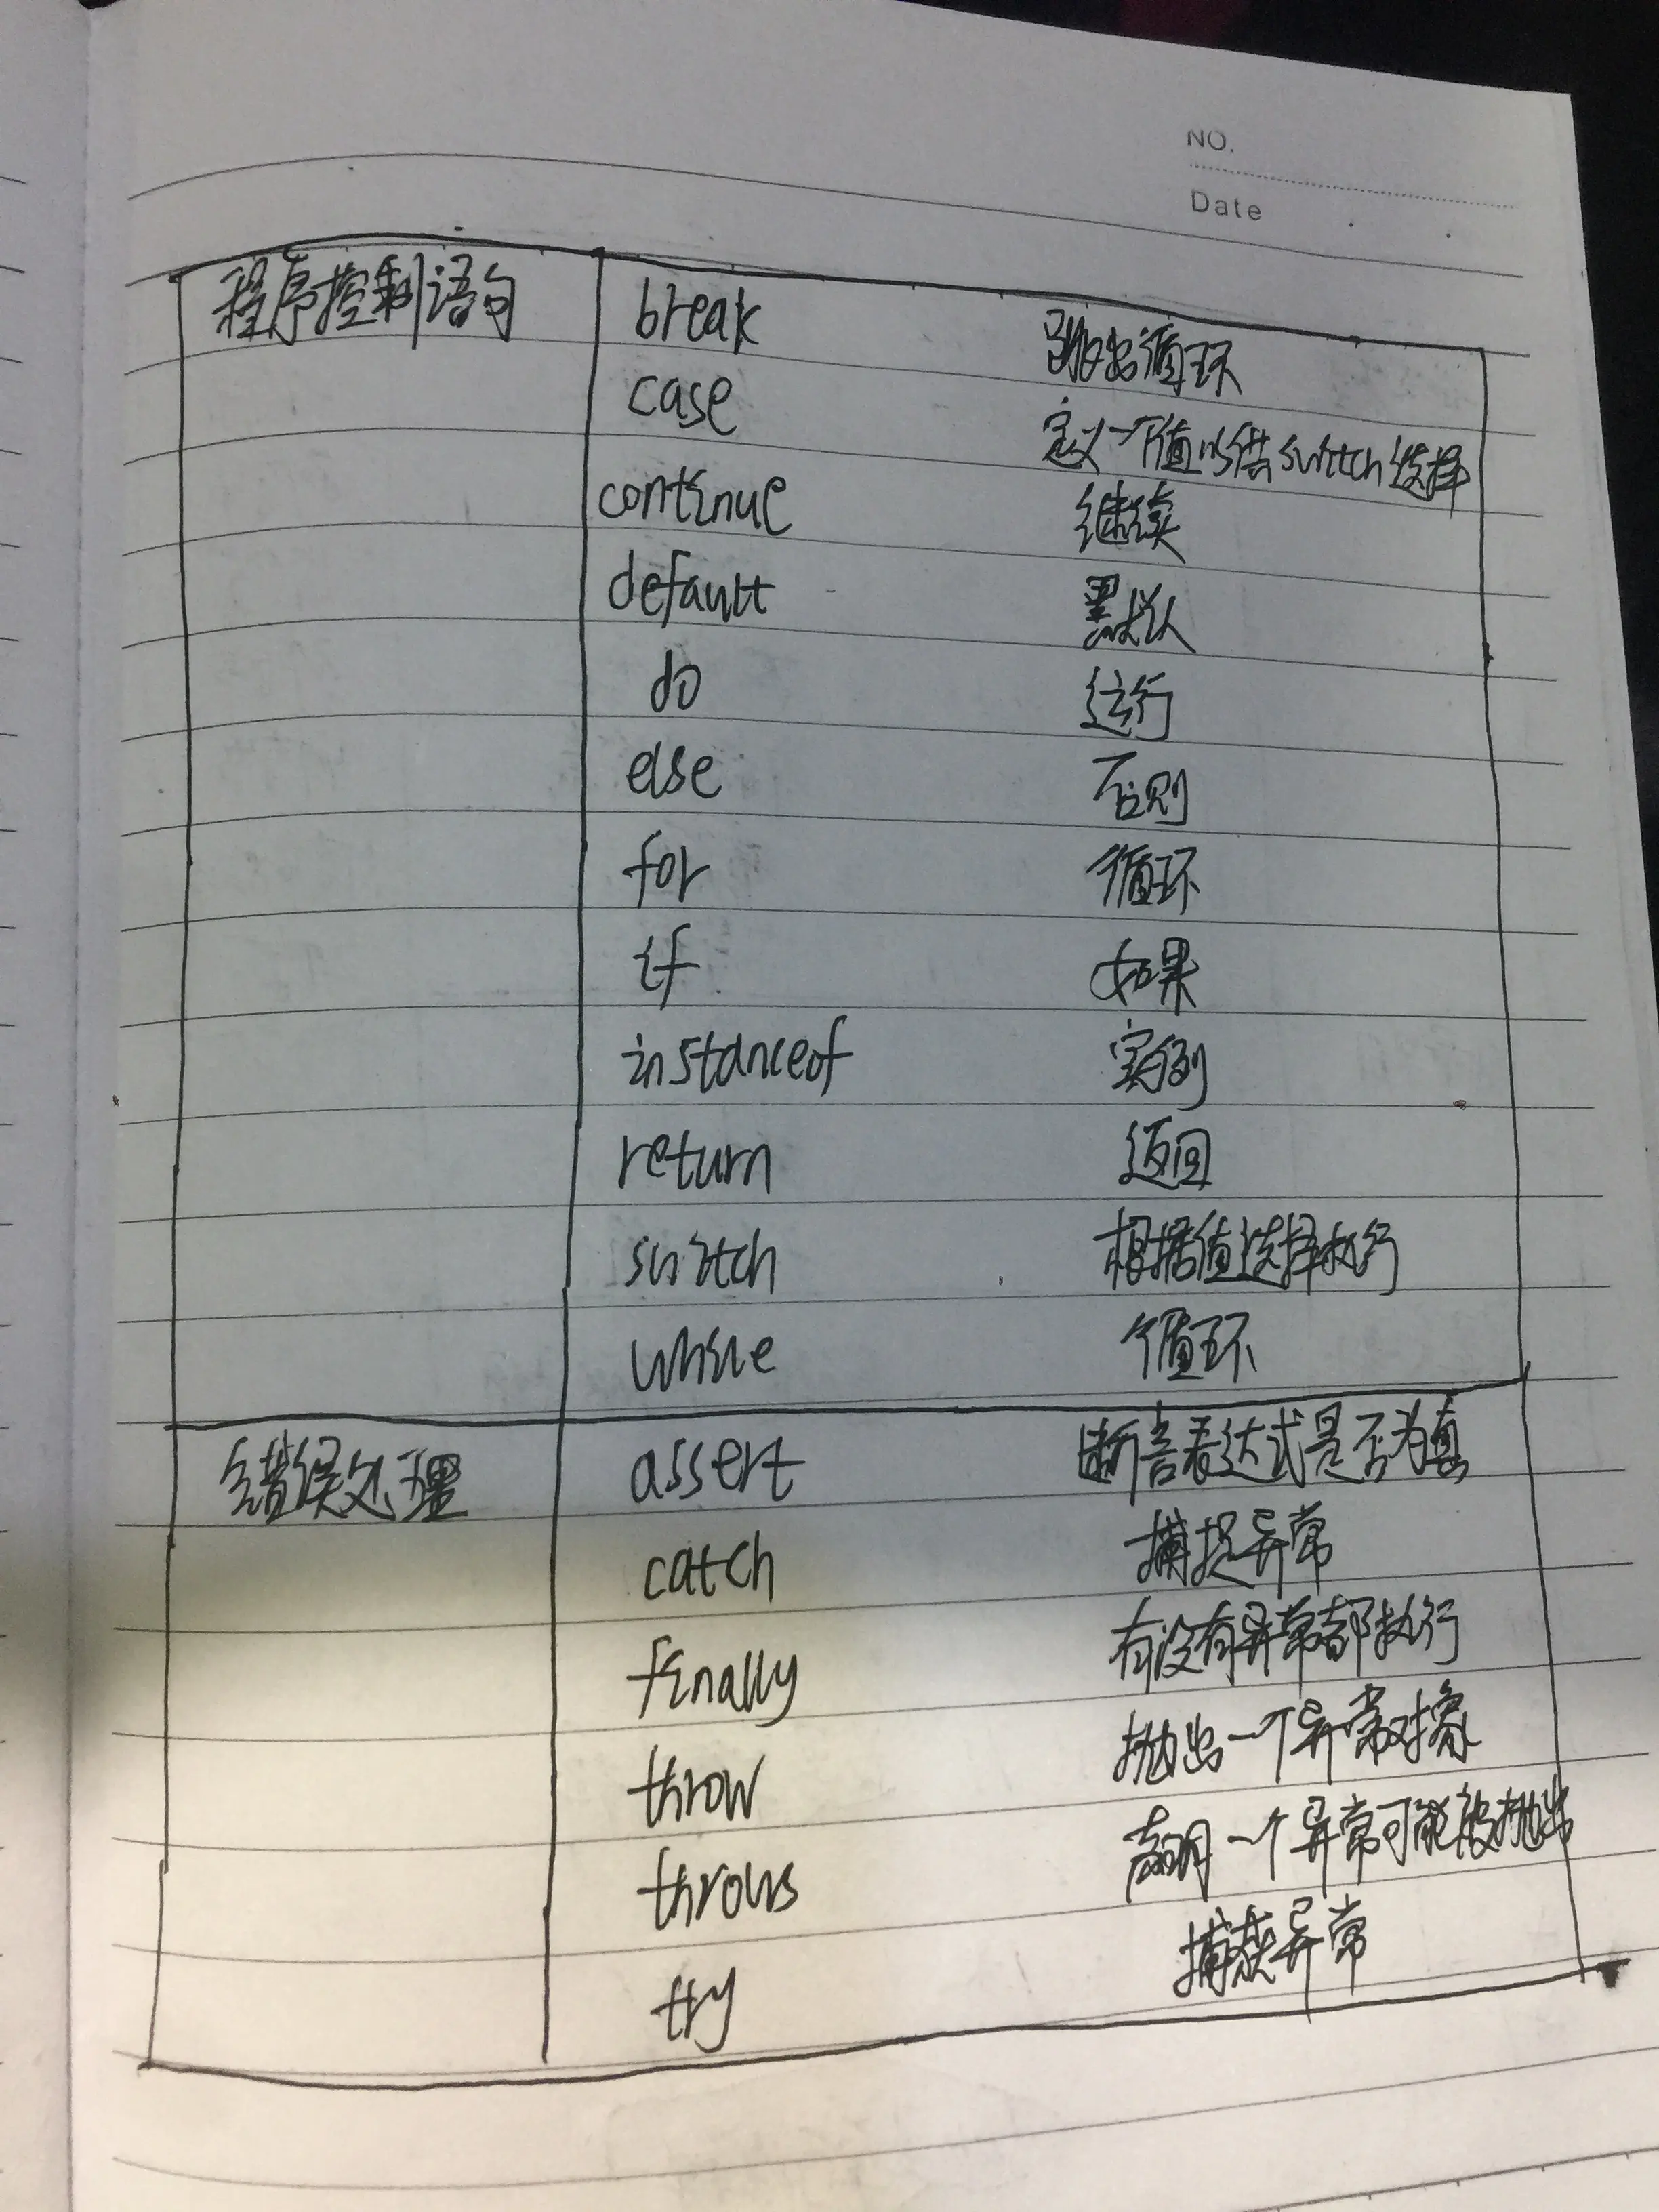 NO.
Date
程序控制语句 break 跳出循环
case 定义一个值以供switch选择
continue 继续
default 默认
do 运行
else 否则
for 循环
if 如果
instanceof 实例
return 返回
switch 根据值选择执行
while 循环
错误处理 assert 断言表达式是否为真
catch 捕捉异常
finally 有没有异常都执行
throw 抛出一个异常对象
throws 声明一个异常可能被抛出
try 捕获异常